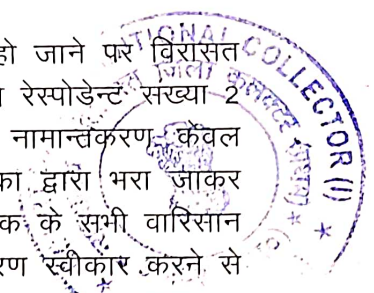 हो जाने पर विरासत
रेस्पोडेन्ट संख्या 2
नामान्तकरण केवल
का द्वारा भरा जाकर
क के सभी वारिसान
रण स्वीकार करने से
TIONAL COLLECTOR (I)
जिला कलक्टर